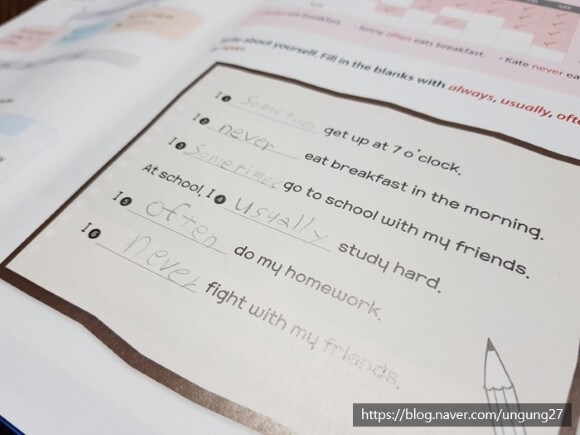 eats breakfast. • Jenny often eats breakfast. • Kate never ea
about yourself. Fill in the blanks with always, usually, ofte
never.
I ❶ Sometimes get up at 7 o'clock.
I ❷ never eat breakfast in the morning.
I ❸ Sometimes go to school with my friends.
At school, I ❹ usually study hard.
I ❺ often do my homework.
I ❻ never fight with my friends.
https://blog.naver.com/ungung27